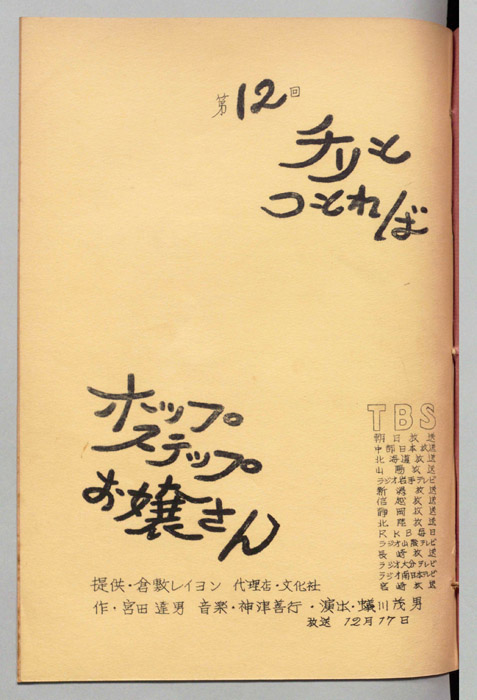 第12回
チリも
つもれば
ホップ
ステップ
お嬢さん
TBS
朝日放送
中部日本放送
北海道放送
山陽放送
ラジオ岩手テレビ
新潟放送
信越放送
静岡放送
北陸放送
RKB毎日
ラジオ山陰テレビ
長崎放送
ラジオ大分テレビ
ラジオ南日本テレビ
宮崎放送
提供・倉敷レイヨン 代理店・文化社
作・宮田達男 音楽・神津善行・演出・蟻川茂男
放送 12月17日